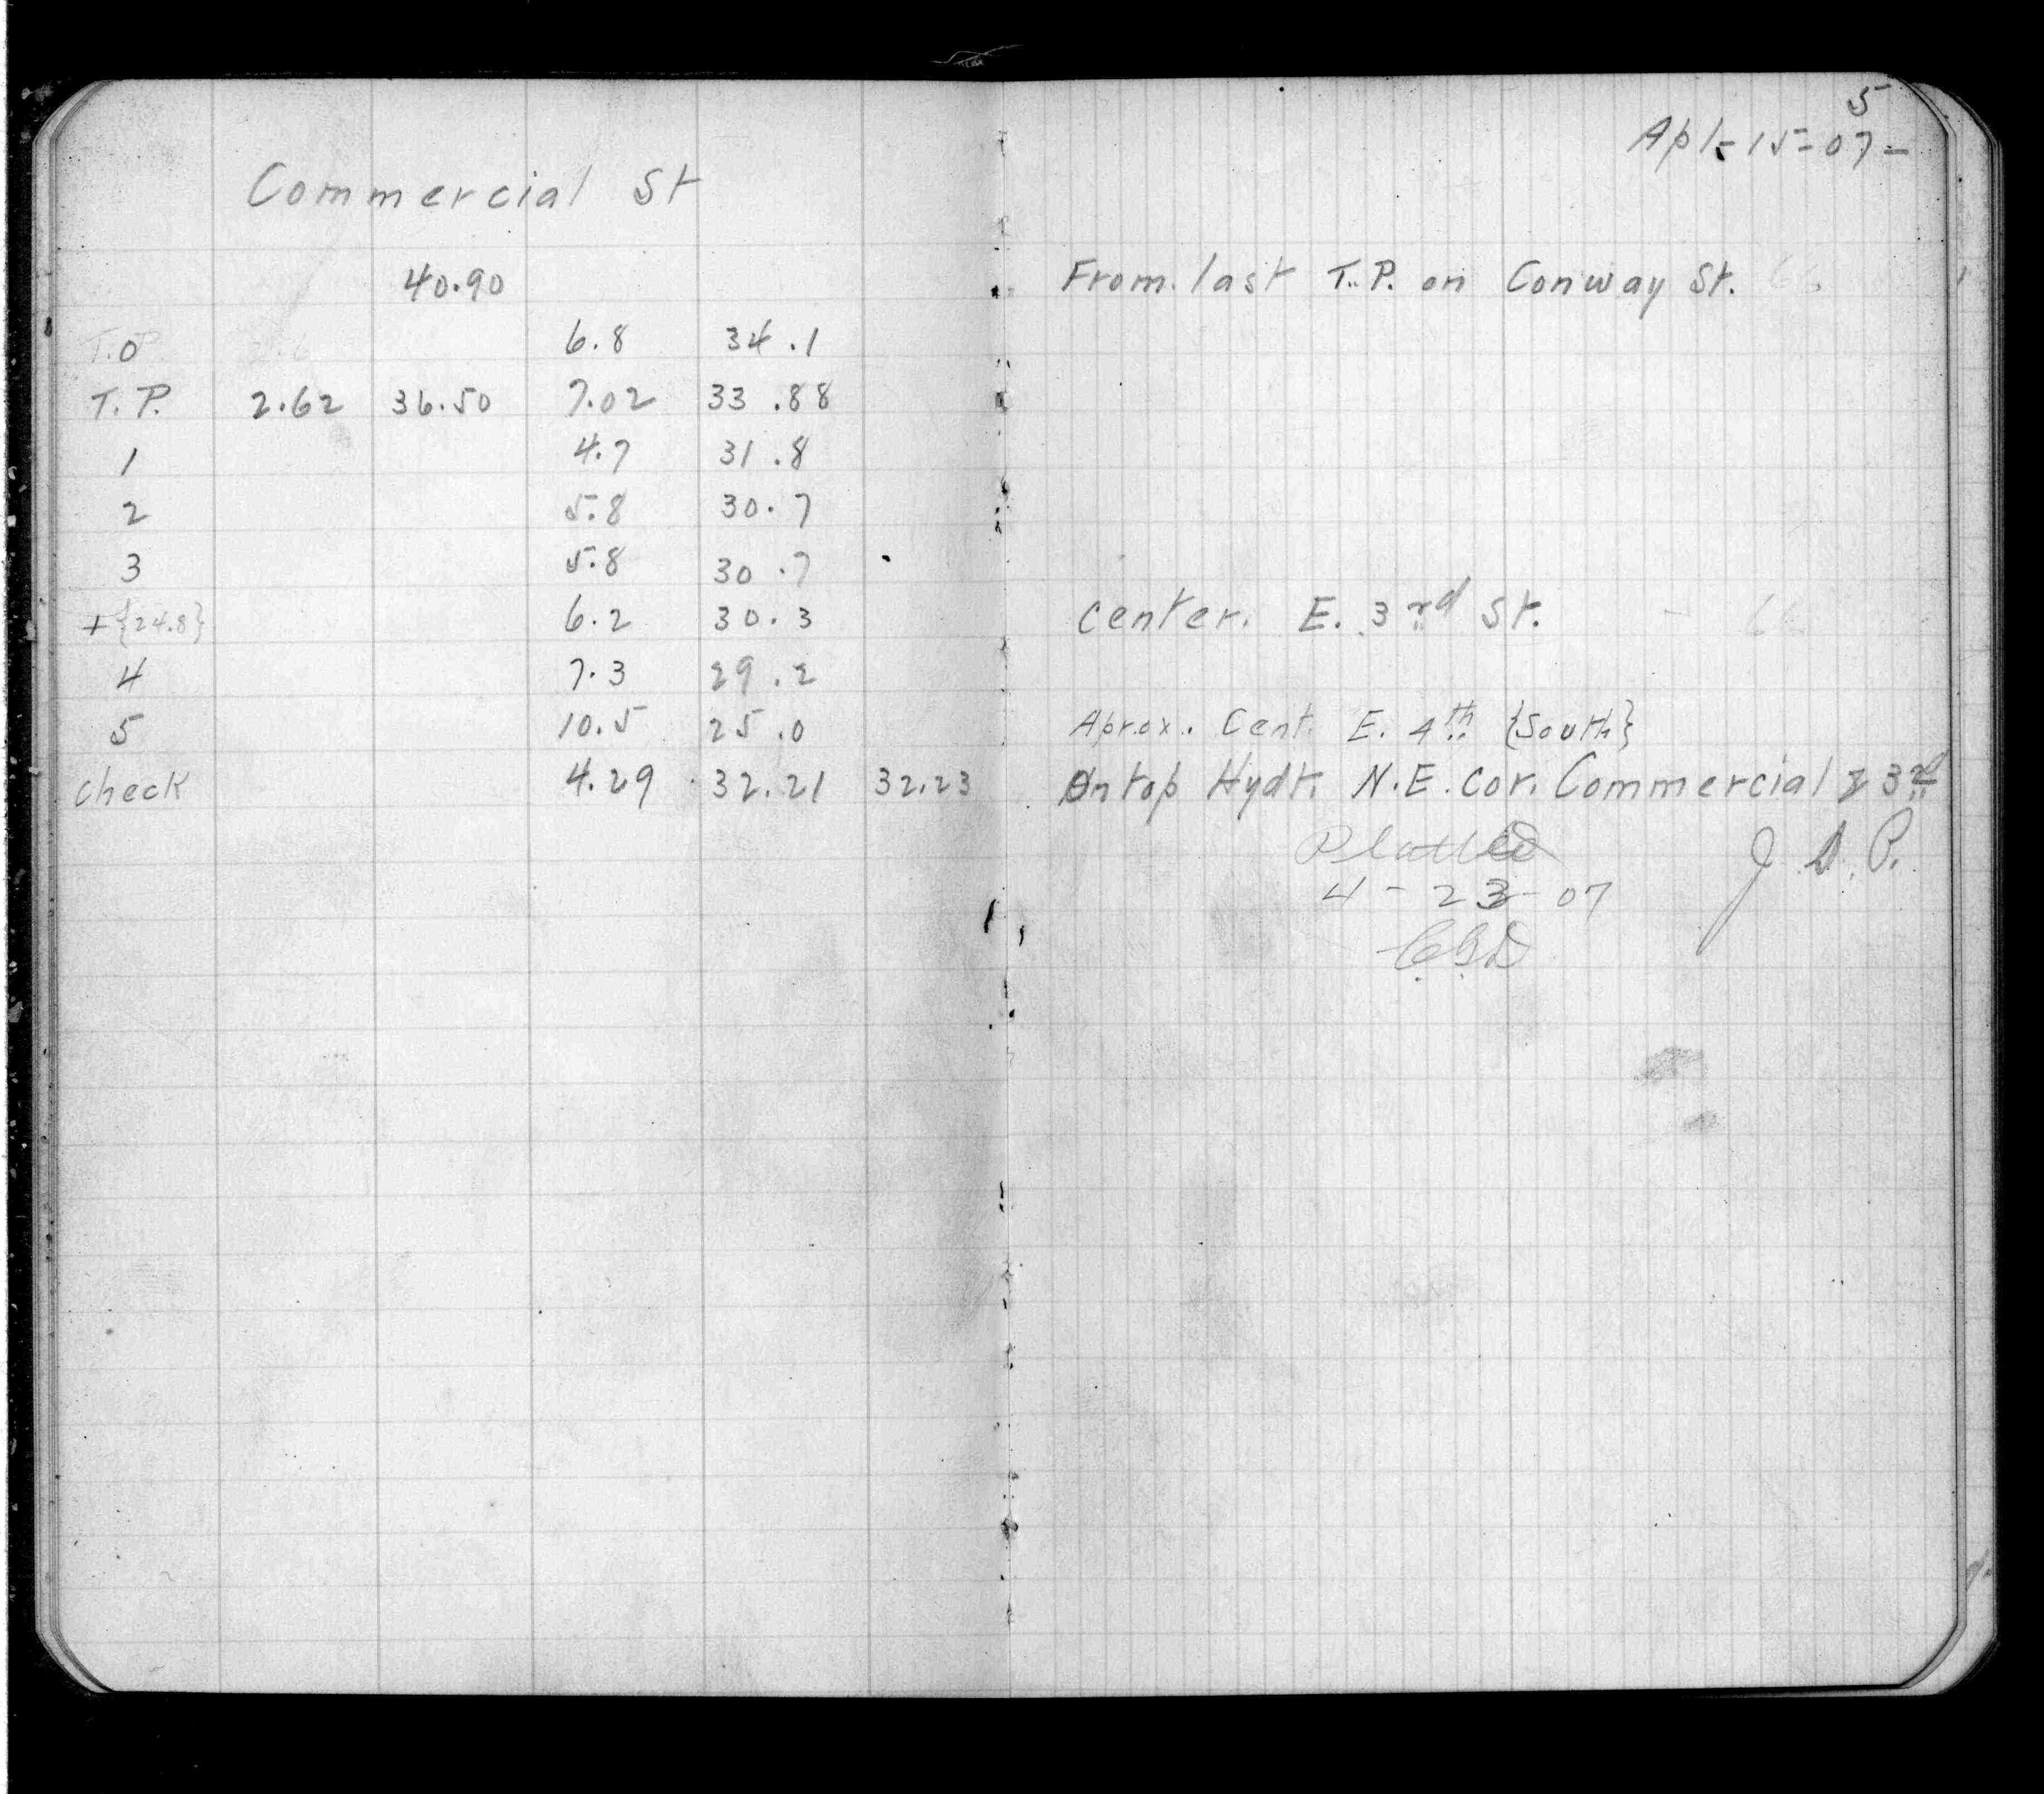 Commercial St
40.90
0 6.8 34.1
T.P. 2.62 36.50 7.02 33.88
1 4.7 31.8
2 5.8 30.7
3 5.8 30.7
+{24.8} 6.2 30.3
4 7.3 29.2
5 10.5 25.0
check 4.29 32.21 32.23
5
Apl-15-07-
From last T.P. on Conway St.
Center. E. 3rd St.
Aprox. Cent. E. 4th {South}
On top Hydt. N.E. cor. Commercial & 3rd
Platted J.D.P.
4-23-07
CGD